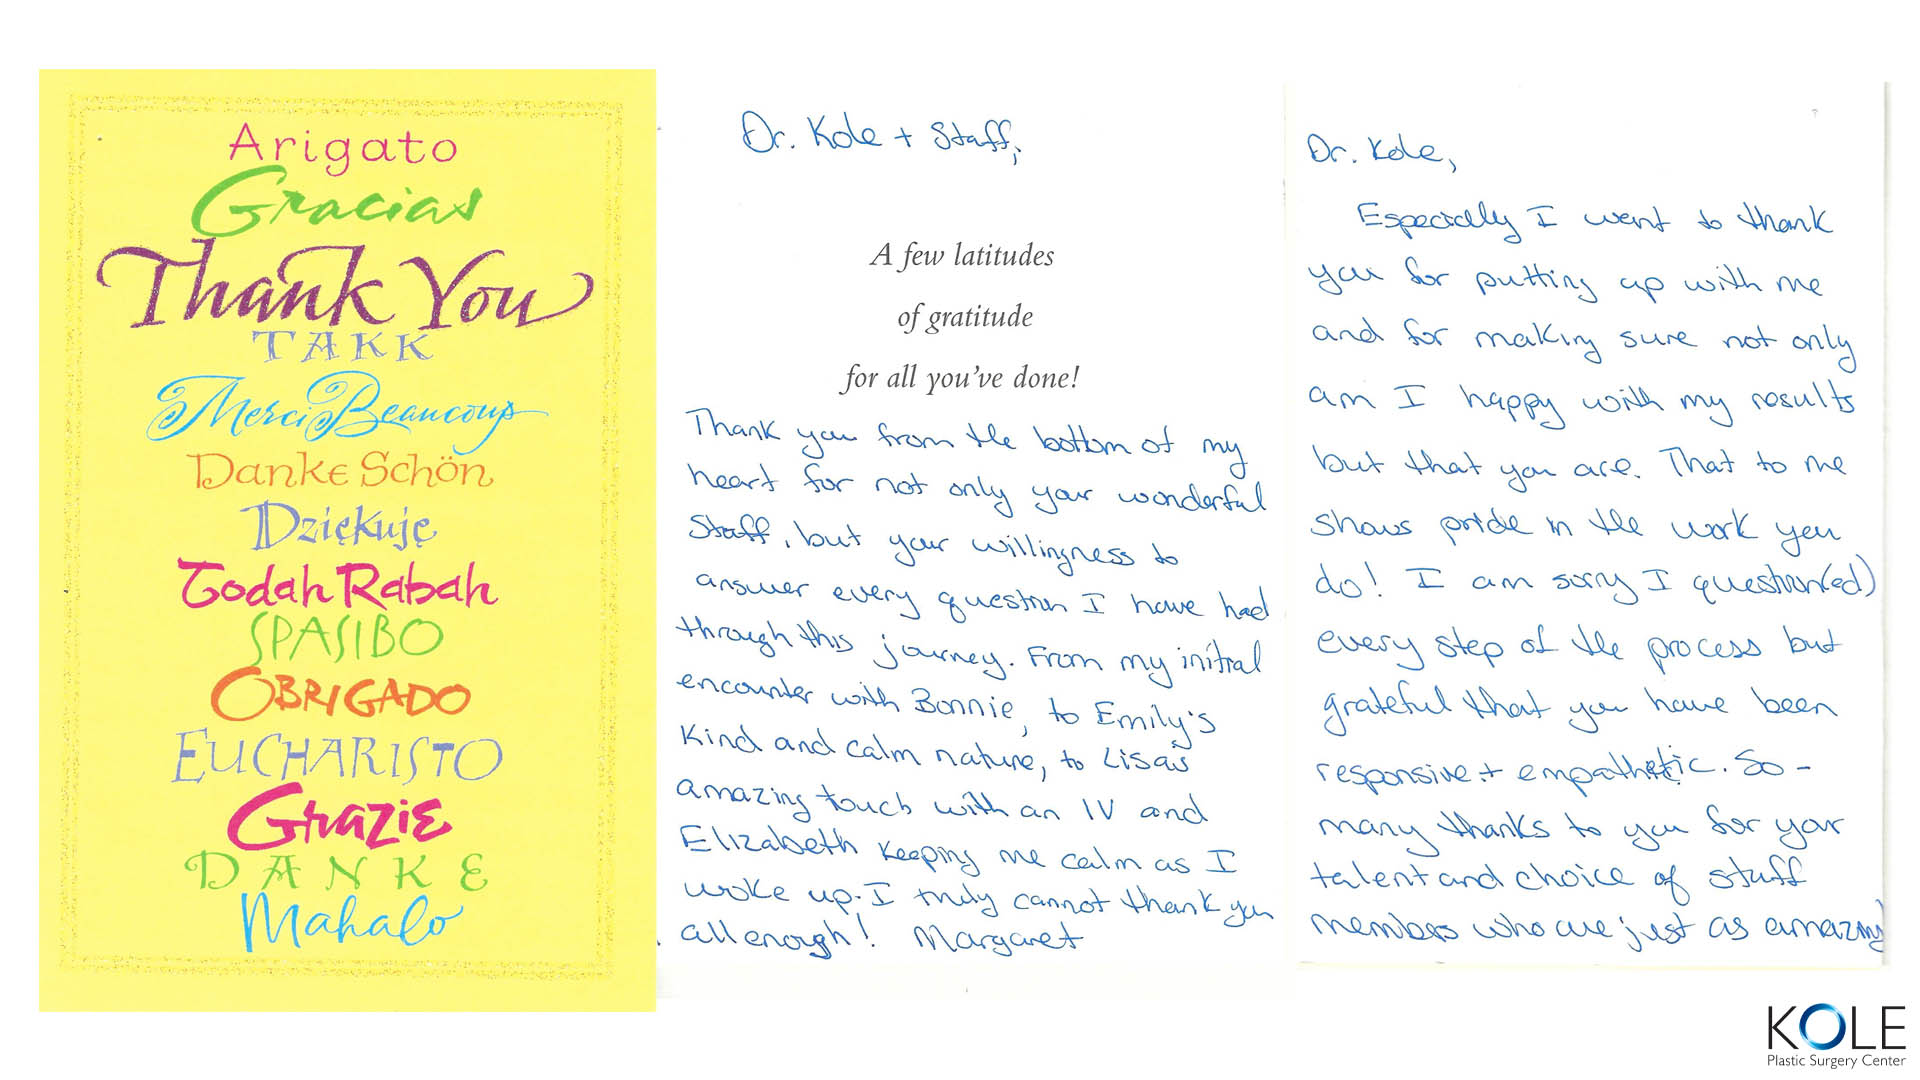 Arigato
Gracias
Thank You
TAKK
Merci Beaucoup
Danke Schön
Dziękuję
Todah Rabah
SPASIBO
OBRIGADO
EUCHARISTO
Grazie
DANKE
Mahalo
Dr. Kole + Staff,
A few latitudes
of gratitude
for all you've done!
Thank you from the bottom of my
heart for not only your wonderful
Staff, but your willingness to
answer every question I have had
through this journey. From my initial
encounter with Bonnie, to Emily's
kind and calm nature, to Lisa's
amazing touch with an IV and
Elizabeth keeping me calm as I
woke up. I truly cannot thank you
all enough! Margaret
Dr. Kole,
Especially I want to thank
you for putting up with me
and for making sure not only
am I happy with my results
but that you are. That to me
shows pride in the work you
do! I am sorry I question(ed)
every step of the process but
grateful that you have been
responsive + empathetic. So -
many thanks to you for your
talent and choice of staff
members who are just as amazing
KOLE
Plastic Surgery Center